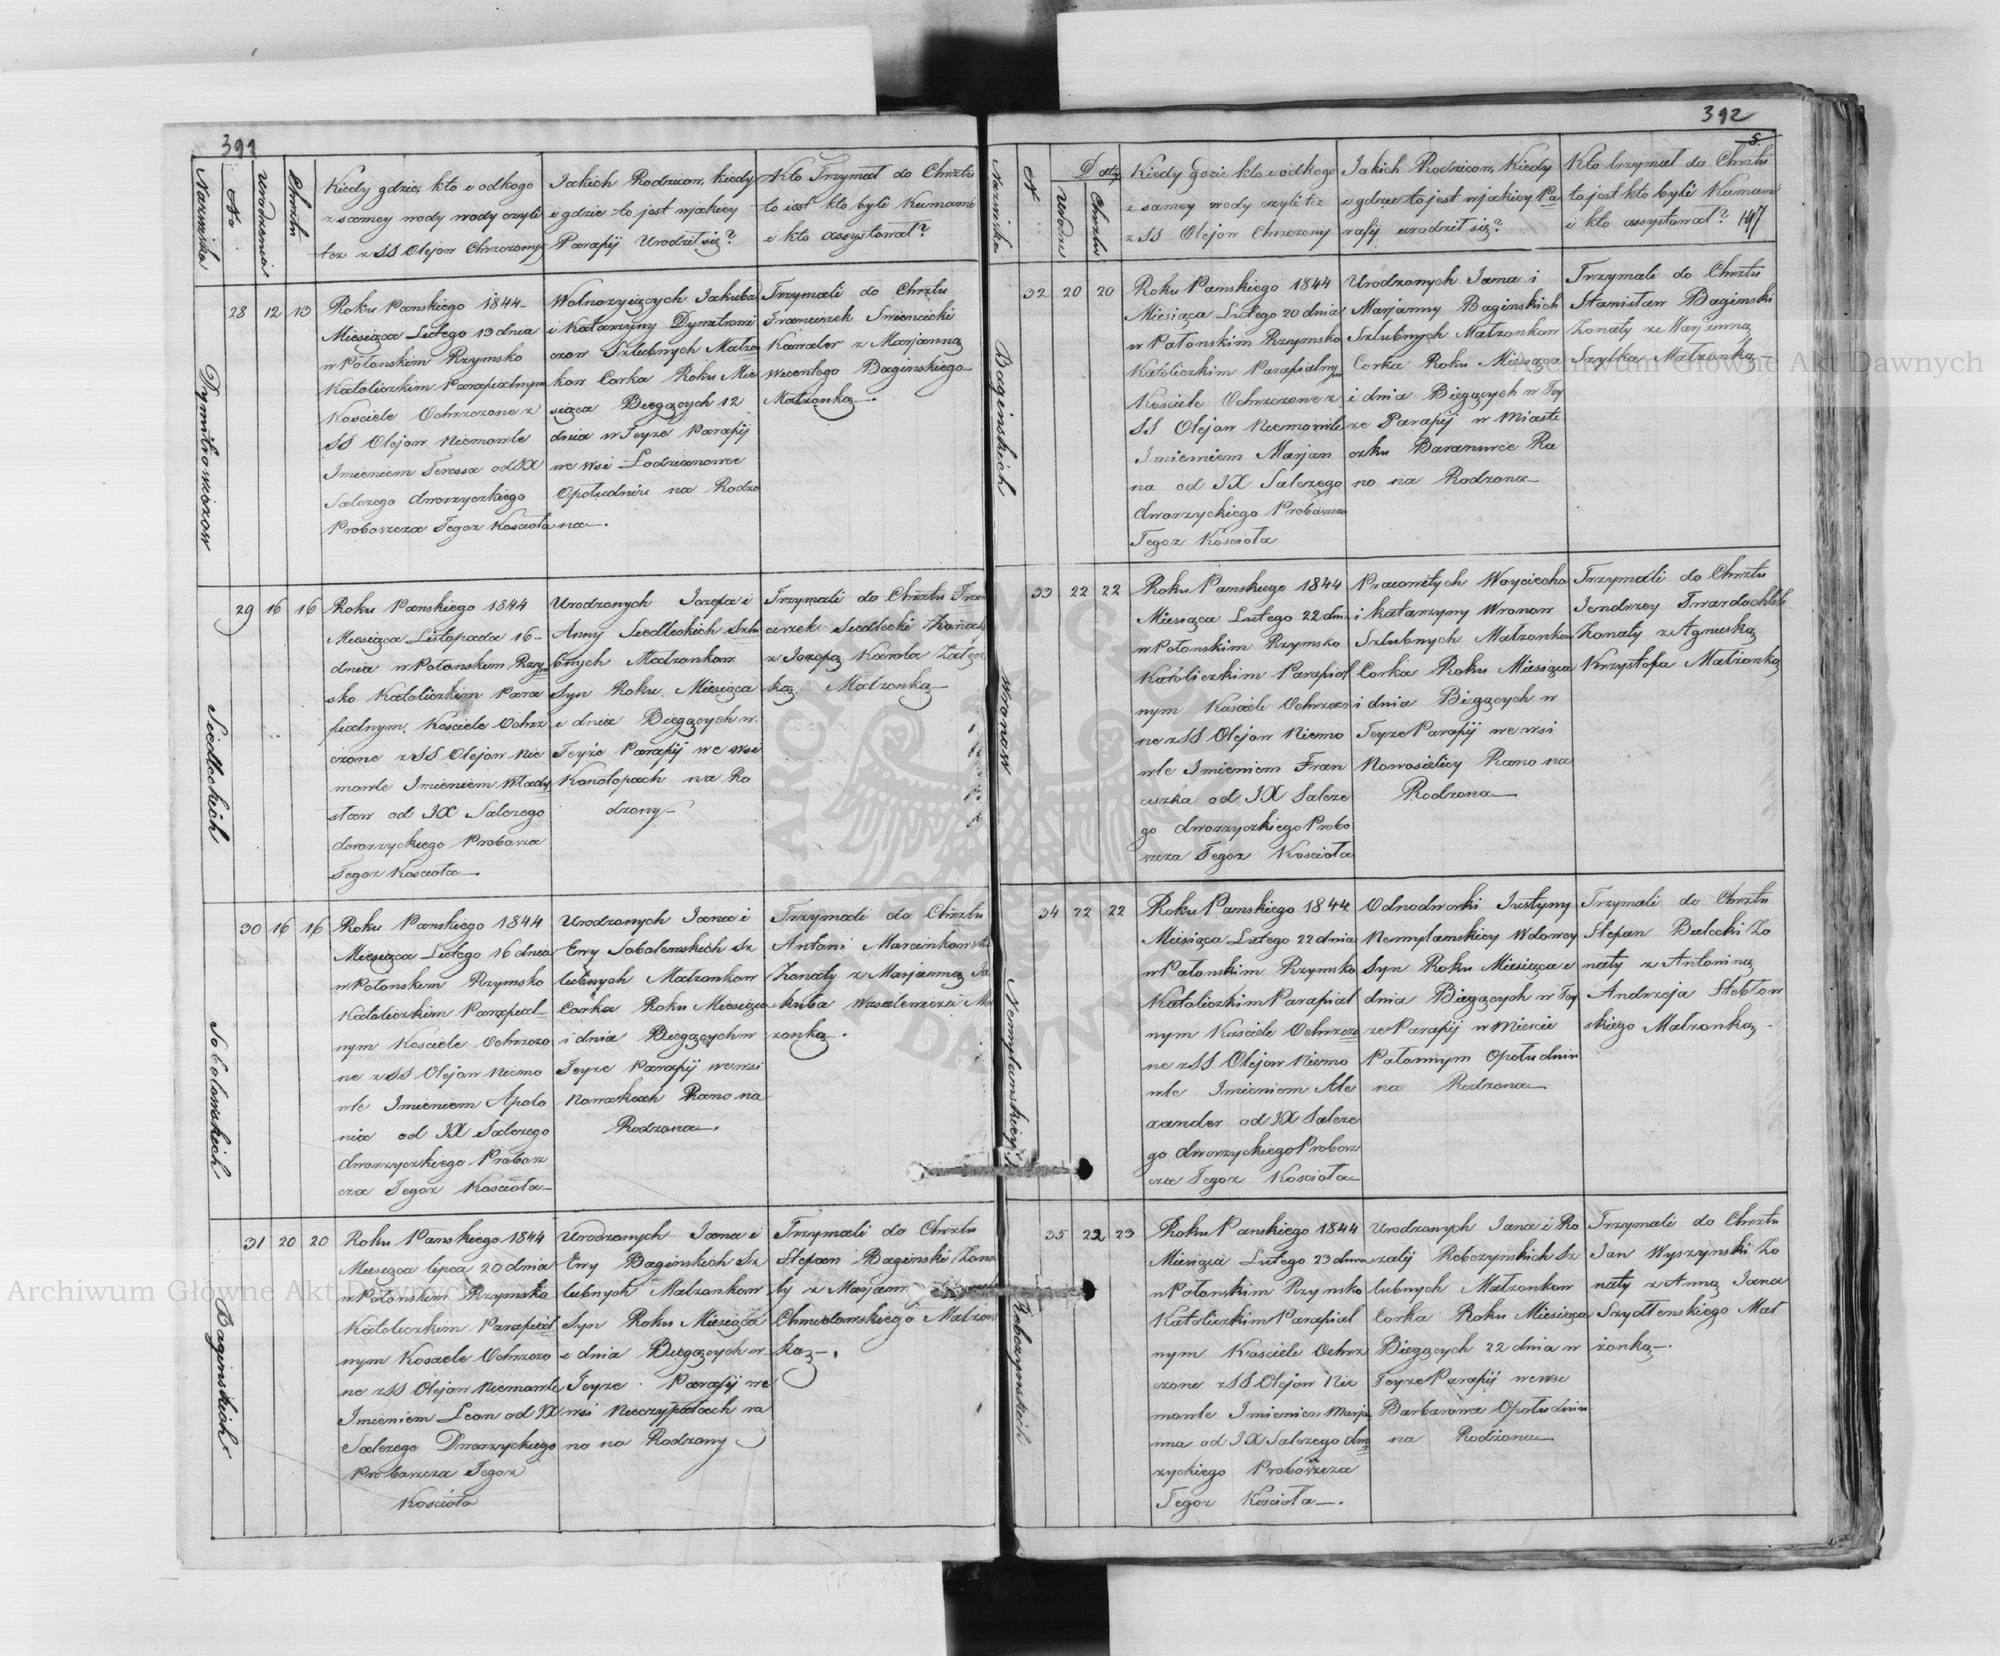 391
Nazwiska
No
Urodzenia
Chrztu
Kiedy gdzie, kto i odkogo
z samey wody wody czyli
tez z SS Olejow Chrzczony
Jakich Rodzicow, kiedy
i gdzie to jest wjakiey
Parafij Urodził się?
Kto Trzymał do Chrztu
to iest kto byli Kumami
i kto assystował?
Dymitrowiczow
28 12 13
Roku Panskiego 1844
Miesiąca Lutego 13 dnia
w Połonskim Rzymsko
Katolickim Parafialnym
Kosciele Ochrzczone z
SS Olejow Niemowle
Imieniem Teressa od JX
Salezego dworzyckiego
Proboszcza Tegoz Kosciola
Wolnozyiących Jakuba
i Katarzyny Dymitrowi
czow Szlubnych Małzo
kow Corka Roku Mie
siąca Bieżących 12
dnia w Teyze Parafij
we wsi Lodzianowce
Opołudniu na Rodzo
na.
Trzymali do Chrztu
Franciszek Swiencicki
Kawaler z Marjanną
Wicentego Baginskiego
Małzonką.
Siedleckich
29 16 16
Roku Panskiego 1844
Miesiąca Listopada 16
dnia w Połonskim Rzym
sko Katolickim Para
fialnym Kosciele Ochrz
czone z SS Olejow Nie
mowle Imieniem Włady
sław od JX Salezego
dworzyckiego Probosza
Tegoz Kosciola.
Urodzonych Jozefa i
Anny Siedleckich Szlu
bnych Małzonkow
Syn Roku Miesiąca
i dnia Bieżących w
Teyże Parafij we wsi
Konotopach na Ro
dzony
Trzymali do Chrztu Fran
ciszek Siedlecki Zonaty
z Jozefą Karola
Małzonką
Sobolewskich
30 16 16
Roku Panskiego 1844
Miesiąca Lutego 16 dnia
w Połonskim Rzymsko
Katolickim Parafial
nym Kosciele Ochrzczo
ne z SS Olejow Niemo
wle Imieniem Apolo
nia od JX Salezego
dworzyckiego Probosz
cza Tegoz Kosciola
Urodzonych Jana i
Ewy Sobolewskich Sz
lubnych Małzonkow
Corka Roku Miesiąca
i dnia Bieżących w
Teyze Parafij we wsi
Nowakach Rano na
Rodzona.
Trzymali do Chrztu
Antoni Marcinkowski
Zonaty z Marjanną Ja
kuba
zonką.
Baginskich
31 20 20
Roku Panskiego 1844
Miesiąca lipca 20 dnia
w Połonskim Rzymsko
Katolickim Parafial
nym Kosciele Ochrzczo
ne z SS Olejow Niemowle
Imieniem Leon od JX
Salezego Dworzyckiego
Proboszcza Tegoz
Kosciola
Urodzonych Jana i
Ewy Baginskich Sz
lubnych Małzonkow
Syn Roku Miesiąca
i dnia Bieżących w
Teyze Parafij we
wsi Nieczypałach ra
no na Rodzony
Trzymali do Chrztu
Stefan Baginski Zona
ty z Marjann
Chmielowskiego Małzon
ką.
392
147
Nazwiska
N
Daty
Urodze
Chrztu
Kiedy gdzie kto i odkogo
z samey wody czyli tez
z SS Olejow Chrzczony
Jakich Rodzicow, Kiedy
i gdzie to jest wjakiey Pa
rafij urodził się?
Kto trzymał do Chrztu
to jest kto byli Kumami
i kto assystował?
Baginskich
32 20 20
Roku Panskiego 1844
Miesiąca Lutego 20 dnia
w Połonskim Rzymsko
Katolickim Parafialnym
Kosciele Ochrzczone z
SS Olejow Niemowle
Imieniem Marjan
na od JX Salezego
dworzyckiego Proboszcza
Tegoz Kosciola
Urodzonych Jana i
Marjanny Baginskich
Szlubnych Małzonkow
Corka Roku Miesiąca
i dnia Bieżących w Tey
ze Parafij w Miaste
czku Baranowce Ra
no na Rodzona
Trzymali do Chrztu
Stanisław Baginski
Zonaty ze Marjanną
Szyłka Małzonką
Wronow
33 22 22
Roku Panskiego 1844
Miesiąca Lutego 22 dnia
w Połonskim Rzymsko
Katolickim Parafial
nym Kosciele Ochrzczo
ne z SS Olejow Niemo
wle Imieniem Fran
ciszka od JX Saleze
go dworzyckiego Probo
szcza Tegoz Kosciola
Pracowitych Woyciecha
i Katarzyny Wronow
Szlubnych Małzonkow
Corka Roku Miesiąca
i dnia Bieżących w
Teyze Parafij we wsi
Nowosielicy Rano na
Rodzona
Trzymali do Chrztu
Jendrzey Twardochleb
Zonaty z Agneszką
Krzysztofa Małzonką
Niemyłanskiey
34 22 22
Roku Panskiego 1844
Miesiąca Lutego 22 dnia
w Połonskim Rzymsko
Katolickim Parafial
nym Kosciele Ochrzczo
ne z SS Olejow Niemo
wle Imieniem Ale
xander od JX Saleze
go dworzyckiego Probosz
cza Tegoz Kosciola
Odnodworki Justyny
Niemyłanskiey Wdowey
Syn Roku Miesiąca i
dnia Bieżących w Tey
ze Parafij w Miescie
Połonnym Opołudniu
na Rodzona
Trzymali do Chrztu
Stefan Bielecki Zo
naty z Antoniną
Andrzeja Stebłow
skiego Małzonką
Rebczynskich
35 22 23
Roku Panskiego 1844
Miesiąca Lutego 23 dnia
w Połonskim Rzymsko
Katolickim Parafial
nym Kosciele Ochrz
czone z SS Olejow Nie
mowle Imieniem Marja
nna od JX Salezego dwo
rzyckiego Proboszcza
Tegoz Kosciola.
Urodzonych Jana i Ro
zalij Rebczynskich Sz
lubnych Małzonkow
Corka Roku Miesiąca
Bieżących 22 dnia w
Teyze Parafij we wsi
Barbarowce Opołudniu
na Rodzona.
Trzymali do Chrztu
Jan Wyszynski Zo
naty z Anną Jana
Szydłowskiego Mał
zonką.
Archiwum Główne Akt Dawnych
Archiwum Główne Akt Dawnych